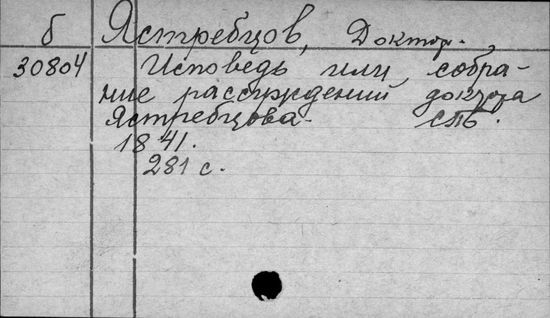 б Ястребцов, Доктор.
30804 Исповедь или собра-
ние рассуждений доктора
Ястребцова. СПб.
1841.
281 с.